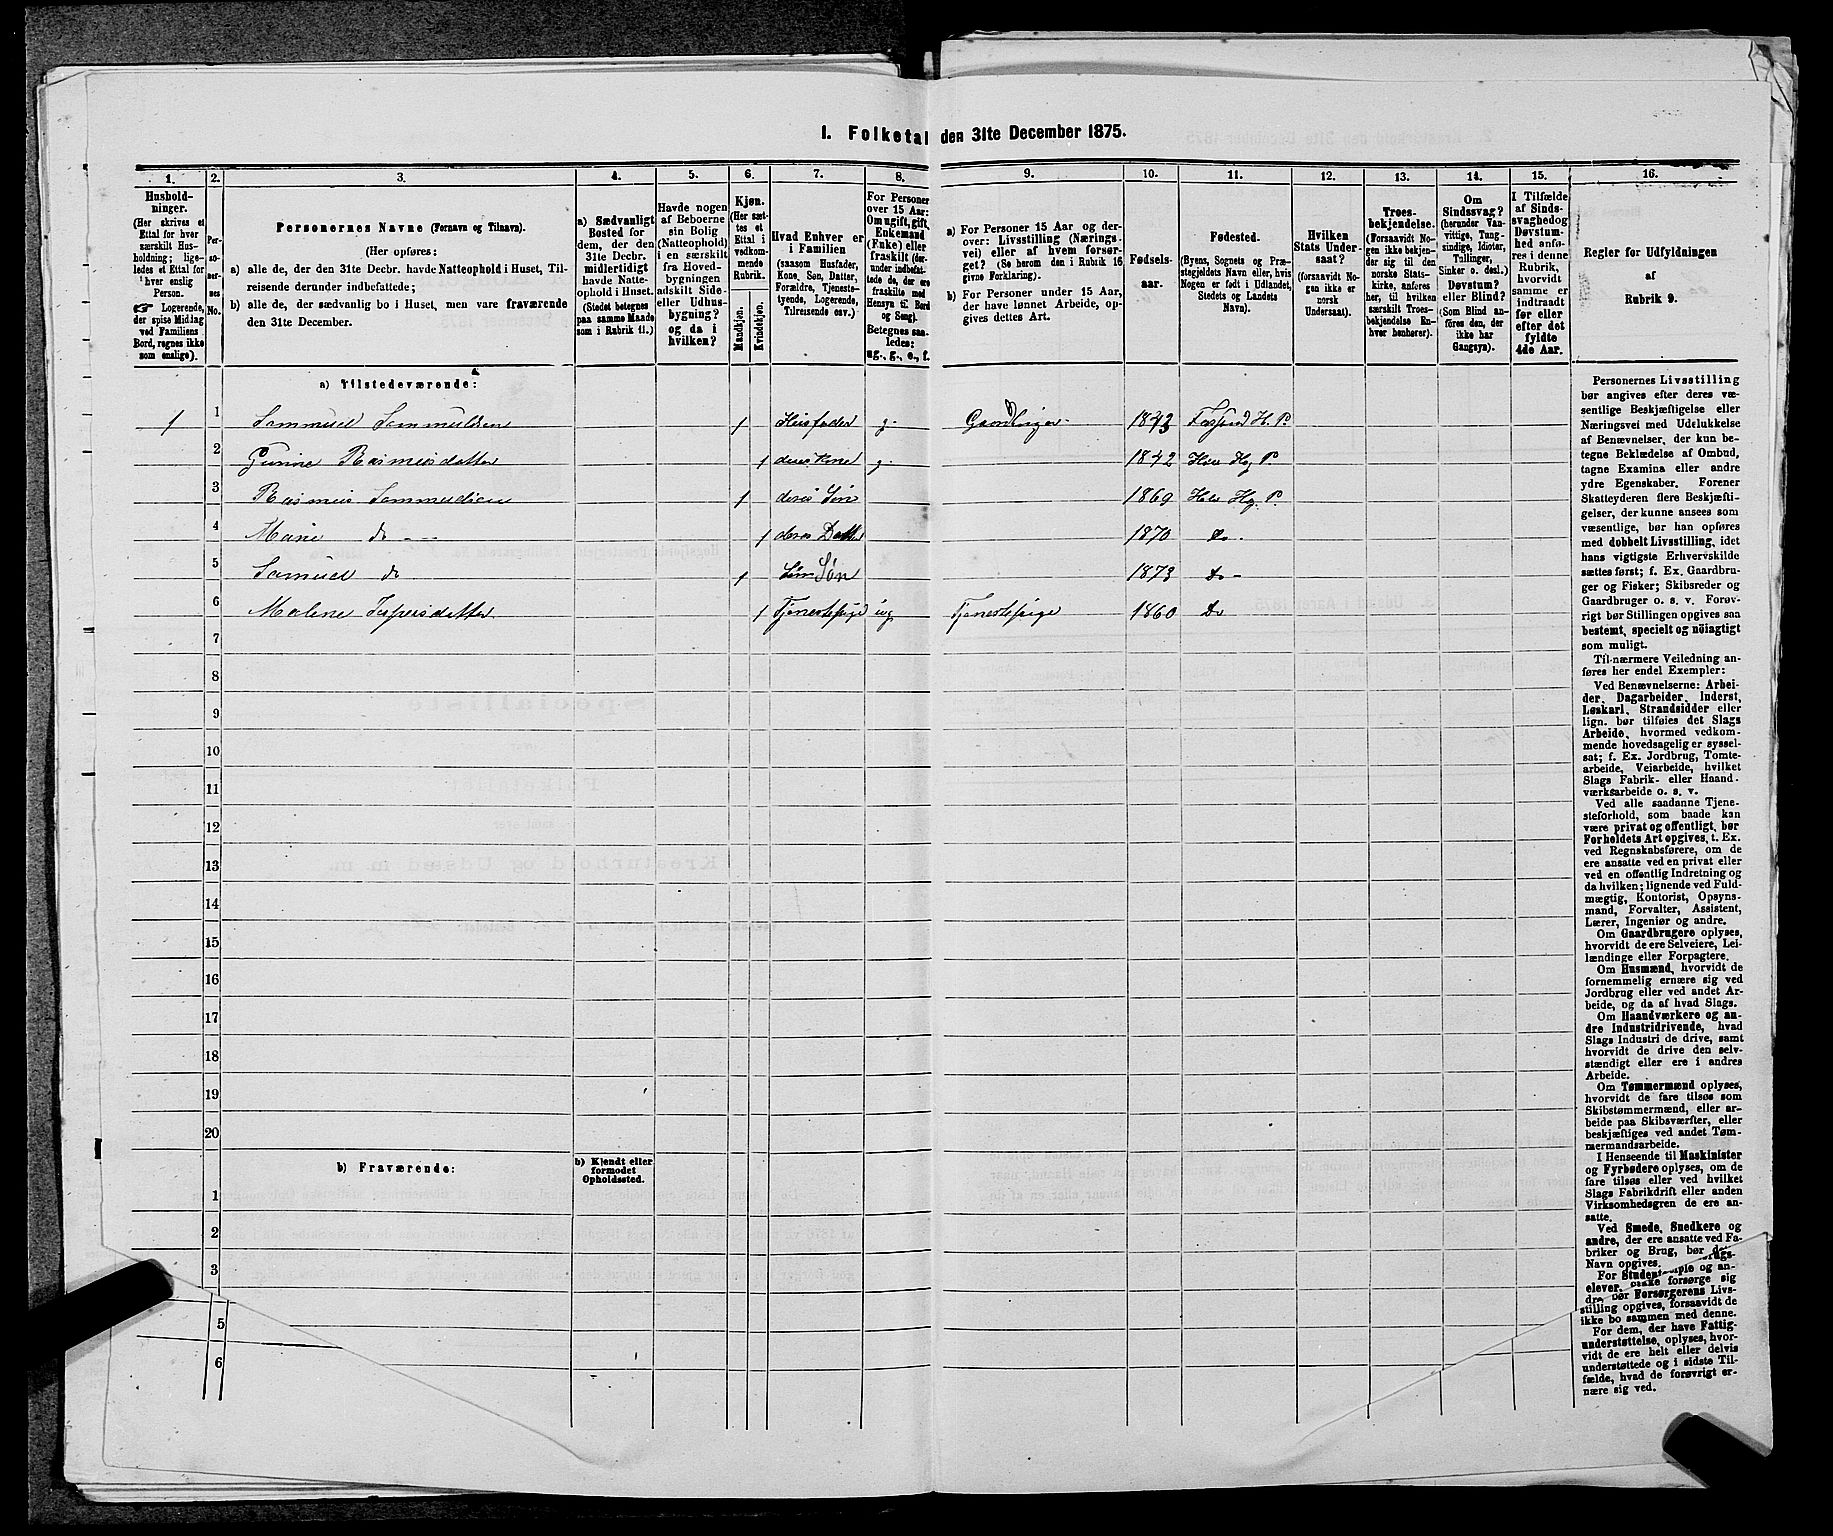 1. Folketal den 31te December 1875.
1. 2. 3. 4. 5. 6. 7. 8. 9. 10. 11. 12. 13. 14. 15. 16.
Hushold-
ninger.
(Her skrives et
Ettal for hver
særskilt Hus-
holdning; lige-
ledes et Ettal for
hver enslig
Person.
Logerende,
der spise Middag
ved Familiens
Bord, regnes ikke
som enslige).
Per-
so-
ner-
nes
No.
Personernes Navne (Fornavn og Tilnavn).
(Her opføres:
a) alle de, der den 31te Decbr. havde Natteophold i Huset, Til-
reisende derunder indbefattede;
b) alle de, der sædvanlig bo i Huset, men vare fraværende
den 31te December.
a) Sædvanligt
Bosted for
dem, der den
31te Decbr.
midlertidigt
havde Natte-
ophold i Huset.
(Stedet betegnes
paa samme Maade
som i Rubrik 11.)
Havde nogen
af Beboerne
sin Bolig
(Natteophold)
i en særskilt
fra Hoved-
bygningen
adskilt Side-
eller Udhus-
bygning?
og da i
hvilken?
Kjøn.
(Her sæt-
tes et
Ettal i
vedkom-
mende
Rubrik.
Mandkjøn.
Kvindekjøn.
Hvad Enhver er
i Familien
(saasom Husfader,
Kone, Søn, Datter,
Forældre, Tjeneste-
tyende, Logerende,
Tilreisende osv.)
For Personer
over 15 Aar:
Om ugift, gift,
Enkemand
(Enke) eller
fraskilt (der-
under indbefat-
tede de, der ere
fraskilte med
Hensyn til Bord
og Seng).
Betegnes saa-
ledes:
ug., g., e., f.
a) For Personer 15 Aar og der-
over: Livsstilling (Nærings-
vei) eller af hvem forsør-
get? (Se herom den i Rubrik 16
givne Forklaring).
b) For Personer under 15 Aar,
der have lønnet Arbeide, op-
gives dettes Art.
Fødsels-
aar.
Fødested.
(Byens, Sognets og Præ-
stegjeldets Navn eller, hvis
Nogen er født i Udlandet,
Stedets og Landets
Navn).
Hvilken
Stats Under-
saat?
(forsaavidt No-
gen ikke er
norsk
Undersaat).
Troes-
bekjendelse.
(Forsaavidt No-
gen ikke bekjen-
der sig til den
norske Stats-
kirke, anføres
her, til hvilken
særskilt Troes-
bekjendelse En-
hver henhører).
Om
Sindssvag?
(herunder Van-
vittige, Tung-
sindige, Idioter,
Tullinger,
Sinker o. desl.)
Døvstum?
eller Blind?
(Som Blind an-
føres den, der
ikke har
Gangsyn).
I Tilfælde
af Sinds-
svaghed og
Døvstum-
hed anfø-
res i denne
Rubrik,
hvorvidt
samme er
indtraadt
før eller
efter det
fyldte
4de Aar.
Regler for Udfyldningen
af
Rubrik 9.
a) Tilstedeværende:
1 1 Sammuel Sammuelsen 1 Husfader g. 1843
2 Gurine Rasmusdatter 1 deres Kone g. 1842
3 Rasmus Sammuelsen 1 deres Søn 1869
4 Marie do 1 deres Datter 1870 Do
5 Samuel do 1 Søn Søn 1873 Do
6 Malene Jespersdatter 1 Tjenestepige ug Tjenestepige 1860 Do
7
8
9
10
11
12
13
14
15
16
17
18
19
20
b) Fraværende:
b) Kjendt eller
formodet
Opholdssted.
1
2
3
5
6
Personernes Livsstilling
bør angives efter deres væ-
sentlige Beskjæftigelse eller
Næringsvei med Udelukkelse
af Benævnelser, der kun be-
tegne Beklædelse af Ombud,
tagne Examina eller andre
ydre Egenskaber. Forener
Skatteyderen flere Beskjæfti-
gelser, der kunne ansees som
væsentlige, bør han opføres
med dobbelt Livsstilling, idet
hans vigtigste Erhvervskilde
sættes først; f. Ex. Gaardbru-
ger og Fisker; Skibsreder og
Gaardbruger o. s. v. Forøv-
rigt bør Stillingen opgives saa
bestemt, specielt og nöiagtigt
som muligt.
Til nærmere Veiledning an-
føres her endel Exempler:
Ved Benævnelserne: Arbei-
der, Dagarbeider, Inderst,
Løskarl, Strandsidder eller
lign. bør tilføies det Slags
Arbeide, hvormed vedkom-
mende hovedsagelig er syssel-
sat; f. Ex. Jordbrug, Tomte-
arbeide, Veiarbeide, hvilket
Slags Fabrik- eller Haand-
værksarbeide o. s. v.
Ved alle saadanne Tjene-
steforhold, som baade kan
være privat og offentligt, bør
Forholdets Art opgives, t. Ex.
ved Regnskabsførere, om de
ere ansatte ved en privat eller
ved en offentlig Indretning og
da hvilken; lignende ved Fuld-
mægtig, Kontorist, Opsyns-
mand, Forvalter, Assistent,
Lærer, Ingeniør og andre.
Om Gaardbrugere oplyses,
hvorvidt de ere Selveiere, Lei-
lændinge eller Forpagtere.
Om Husmænd, hvorvidt de
fornemmelig ernære sig ved
Jordbrug eller ved andet Ar-
beide, og da af hvad Slags.
Om Haandværkere og an-
dre Industridrivende, hvad
Slags Industri de drive, samt
hvorvidt de drive den selv-
stændigt eller ere i andres
Arbeide.
Om Tømmermænd oplyses,
hvorvidt de fare tilsøs som
Skibstømmermænd, eller ar-
beide paa Skibsværfter, eller
beskjæftiges ved andet Tøm-
mermandsarbeide.
I Henseende til Maskinister
og Fyrbødere oplyses, om de
fare tilsøs eller ved hvilket
Slags Fabrikdrift eller anden
Virksomhedsgren de ere an-
satte.
Ved Smede, Snedkere og
andre, der ere ansatte ved Fa-
briker og Brug, bør
Navn opgives.
For og an-
elever, forsørge sig
bør Forsørgerens Livs-
stilling opgives, forsaavidt de
ikke bo sammen med denne.
For dem, der have Fattig-
understøttelse, oplyses, hvor-
vidt de ere helt eller delvis
understøttede og i sidste Til-
fælde, hvad de forøvrigt er-
nære sig ved.